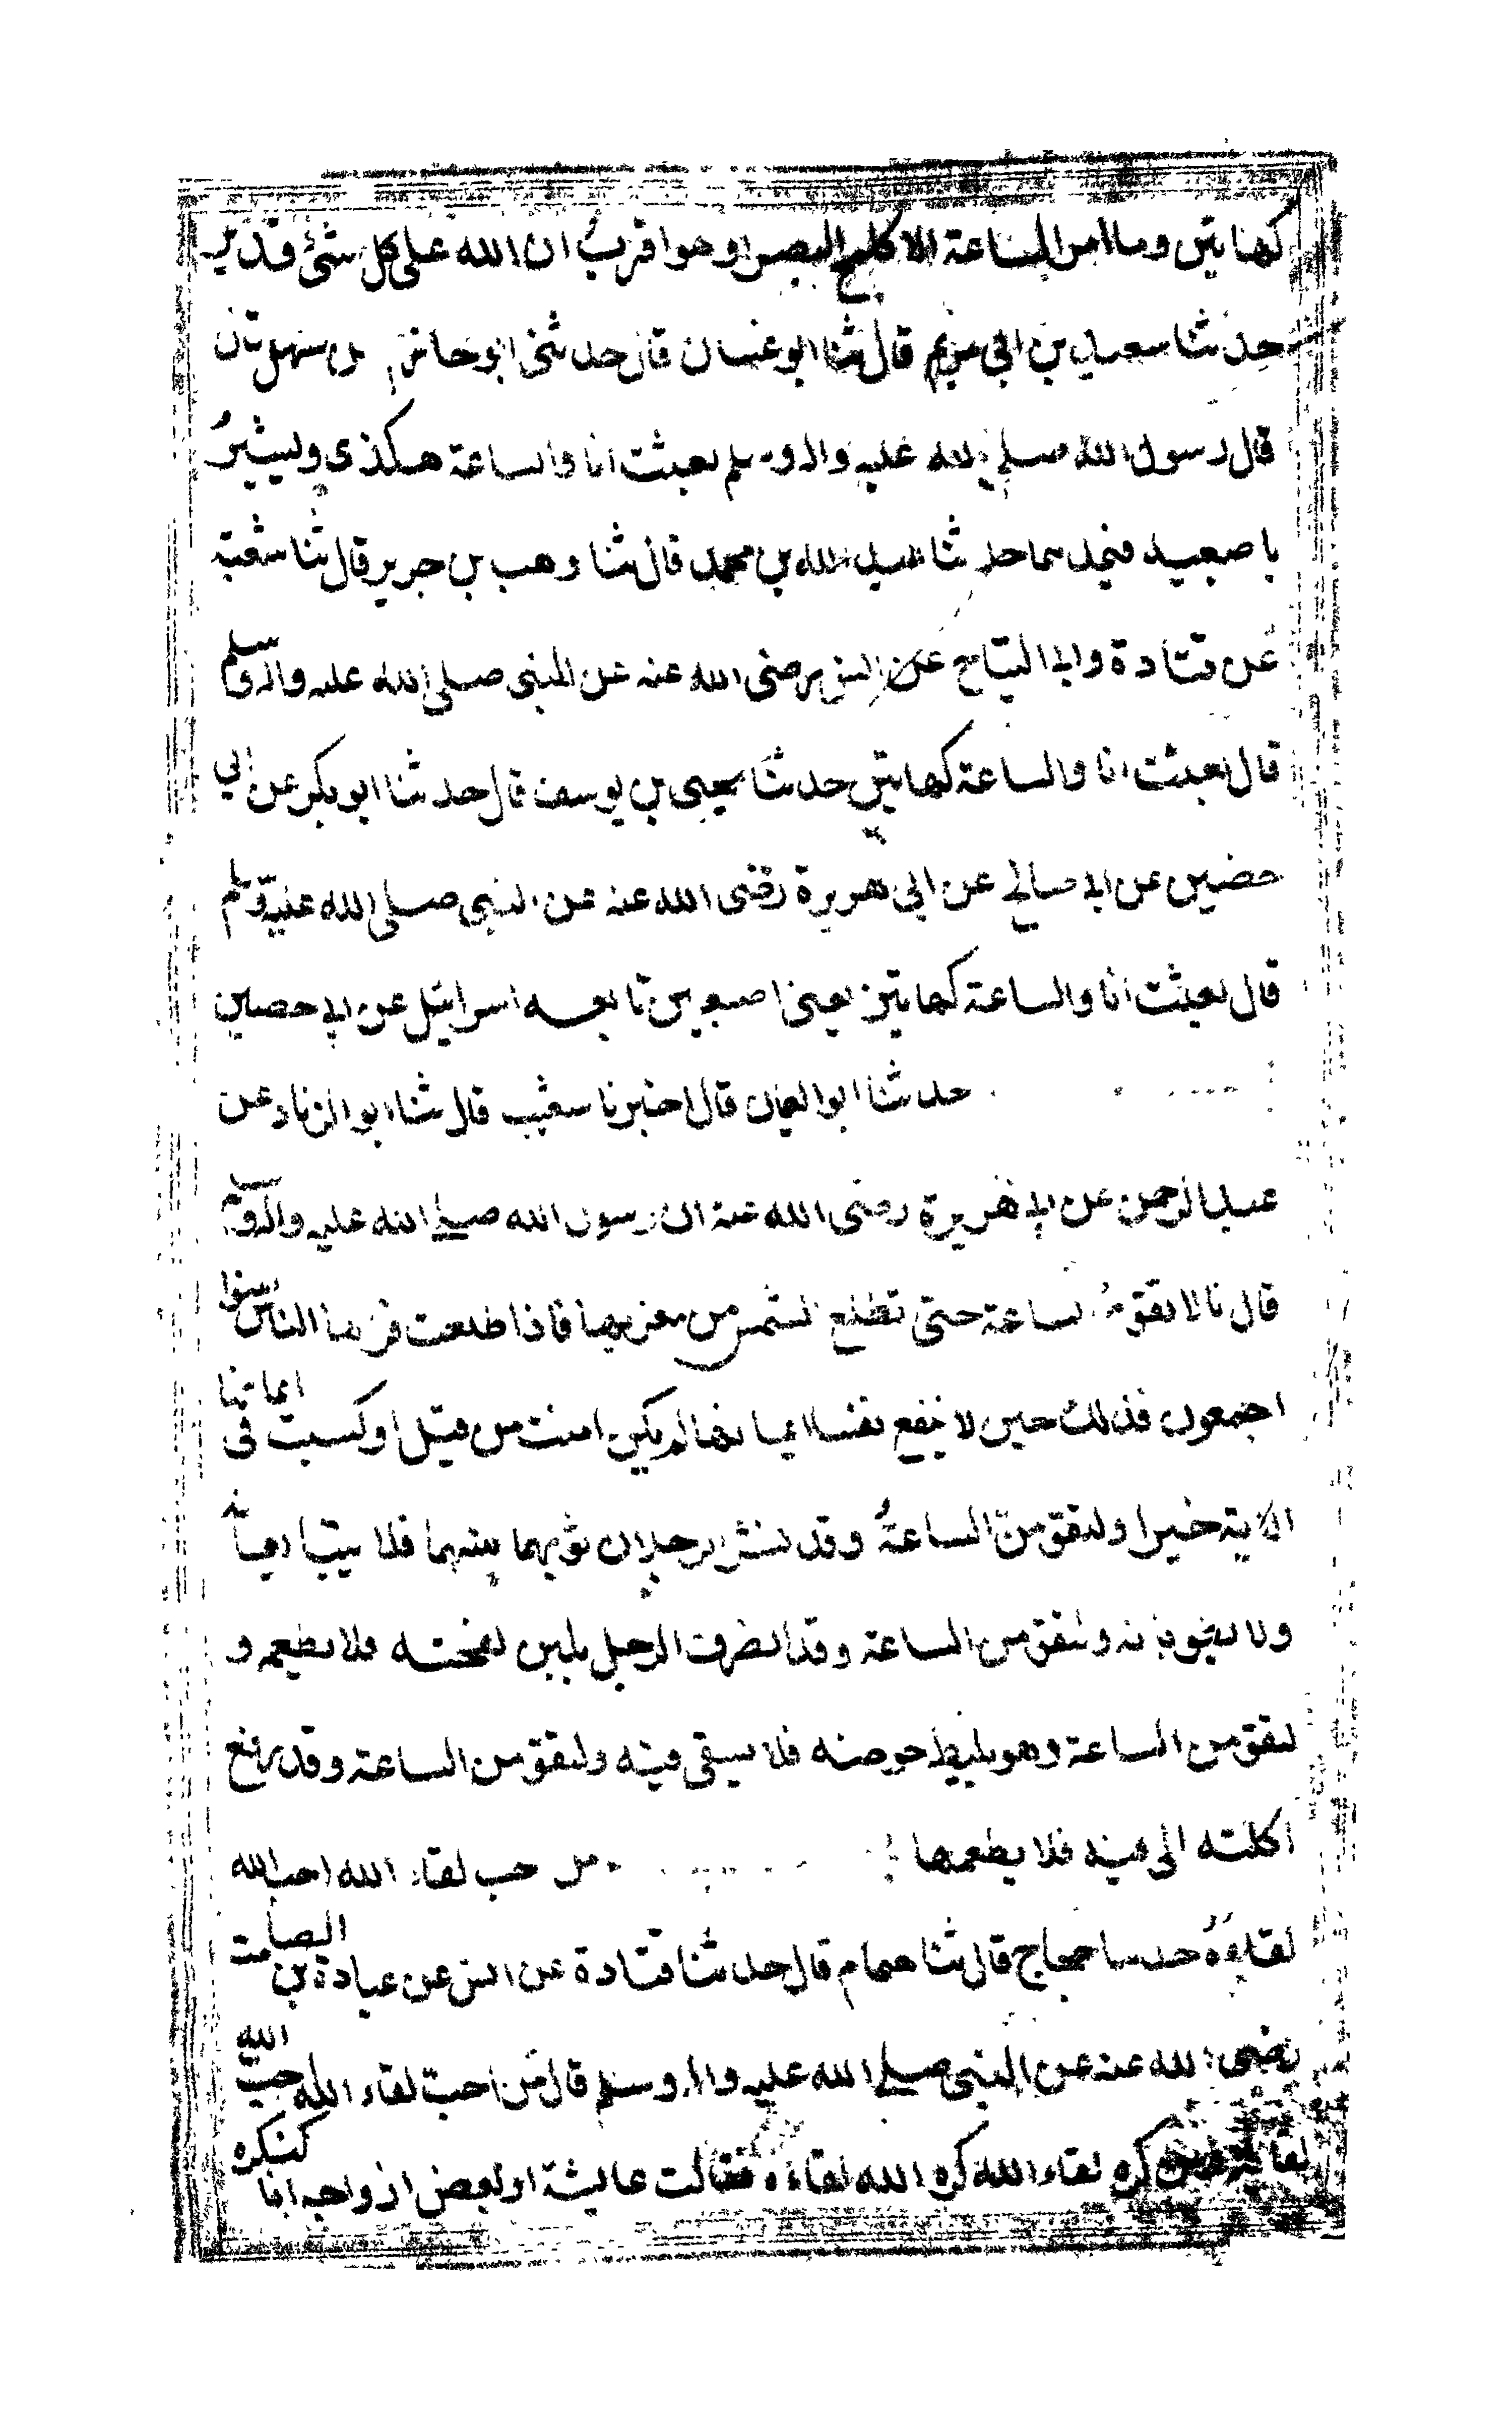 كهاتين وما امر الساعة الا كلمح البصر او هو اقرب ان الله على كل شئ قدير
حدثنا سعيد بن ابي مريم قال ثنا ابو غسان قال حدثني ابو حازم سهل قال
قال رسول الله صلى الله عليه واله وسلم بعثت انا والساعة هكذى ويشيرُ
باصبعيه فيمد بهما حدثنا عبد الله بن محمد قال ثنا وهب بن جرير قال ثنا شعبة
عن قتادة وابي التياح عن انس رضى الله عنه عن النبي صلى الله عليه واله وسلم
قال بعثت انا والساعة كهاتين حدثنا يحيى بن يوسف قال حدثنا ابو بكر عن ابي
حصين عن ابي صالح عن ابي هريرة رضى الله عنه عن النبي صلى الله عليه وسلم
قال بعثت انا والساعة كهاتين يعني اصبعين تابعه اسرائيل عن ابي حصين
حدثنا ابو اليمان قال اخبرنا شعيب قال ثنا ابو الزناد عن
عبد الرحمن عن ابي هريرة رضى الله عنه ان رسول الله صلى الله عليه واله وسلم
قال لا تقوم الساعة حتى تطلع الشمس من مغربها فاذا طلعت فراها الناس امنوا
اجمعون فذلك حين لا ينفع نفسا ايمانها لم تكن امنت من قبل او كسبت في ايمانها
الاية خيرا ولتقومنّ الساعةُ وقد نشر الرجلان ثوبهما بينهما فلا يتبايعانه
ولا يطويانه ولتقومن الساعة وقد انصرف الرجل بلبن لقحته فلا يطعمه و
لتقومن الساعة وهو يليط حوضه فلا يسقي فيه ولتقومن الساعة وقد رفع
اكلته الى فيه فلا يطعمها من حب لقاء الله احب الله
لقاءهُ حدثنا حجاج قال ثنا همام قال حدثنا قتادة عن انس عن عبادة بن الصامت
رضى الله عنه عن النبي صلى الله عليه واله وسلم قال مَن احبّ لقاء الله احب الله
لقاءه ومن كره لقاء الله كره الله لقاءه فقالت عائشة او بعض ازواجه انا لنكره